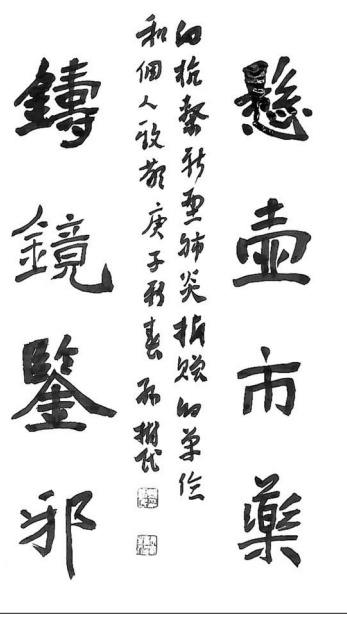 懸壺市藥
向抗擊新型肺炎捐贈的單位
和個人致敬庚子新春
鑄鏡鑒邪